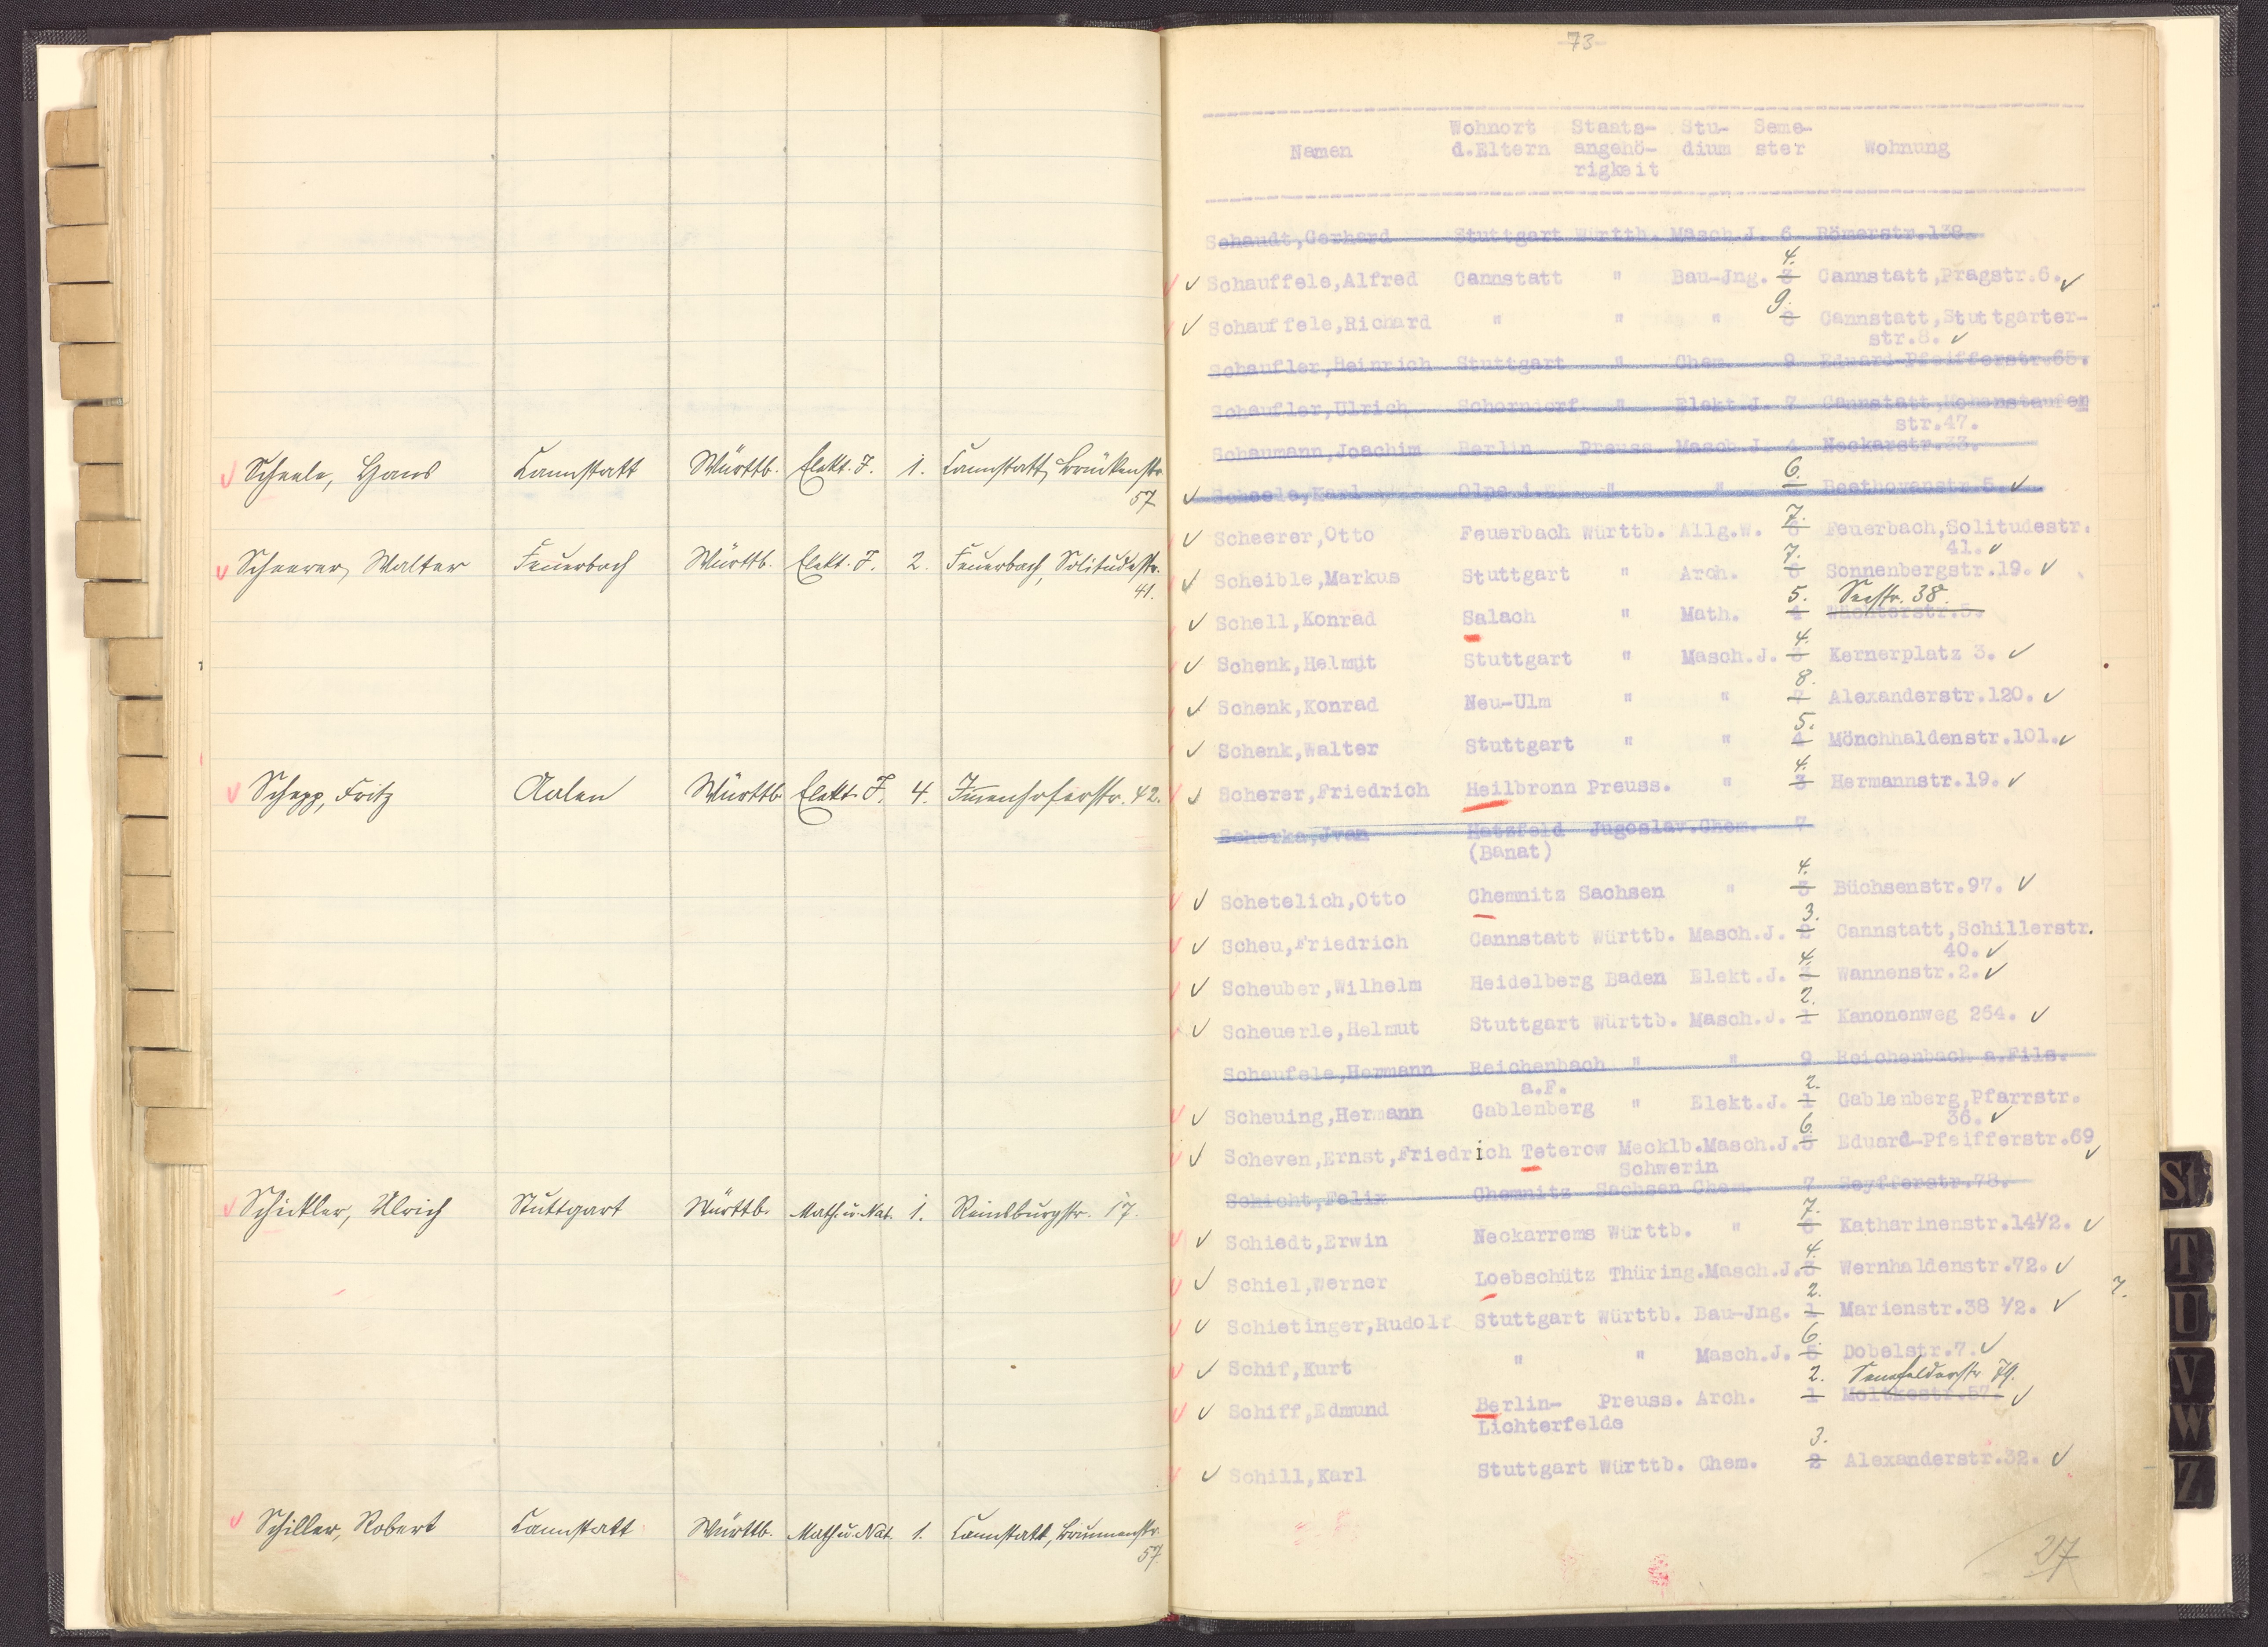 Scheele, Hans Cannstatt Württb. Elekt. J. 1. Cannstatt, Brückenstr.
57
Scheerer, Walter Feuerbach Württb. Elekt. J. 2. Feuerbach, Solitudestr.
41.
Schepp, Fritz Aalen Württb Elekt. J. 4. Immenhoferstr. 42.
Schickler, Ulrich Stuttgart Württb. Math. u. Nat. 1. Reinsburgstr. 17.
Schiller, Robert Cannstatt Württb. Math u. Nat. 1. Cannstatt, Brunnenstr.
57
73
Wohnort Staats- Stu- Seme-
Namen d.Eltern angehö- dium ster Wohnung
rigkeit
Schaudt,Gerhard Stuttgart Württb. Masch.J. 6 Römerstr.138.
4.
Schauffele,Alfred Cannstatt " Bau-Jng. 3 Cannstatt,Pragstr.6.
9.
Schauffele,Richard " " " 8 Cannstatt,Stuttgarter-
str.8.
Schaufler,Heinrich Stuttgart " Chem. 9 Eduard-Pfeifferstr.65.
Schaufler,Ulrich Schorndorf " Elekt.J. 7 Cannstatt,Hohenstaufen
str.47.
Schaumann,Joachim Berlin Preuss. Masch.J. 4 Neckarstr.33.
6.
Scheele,Karl Olpe i.W. " " Beethovenstr.5.
7.
Scheerer,Otto Feuerbach Württb. Allg.W. 6 Feuerbach,Solitudestr.
41.
7.
Scheible,Markus Stuttgart " Arch. 6 Sonnenbergstr.19.
5. Seestr. 38.
Schell,Konrad Salach " Math. 4 Wächterstr.5.
4.
Schenk,Helmut Stuttgart " Masch.J. 3 Kernerplatz 3.
8.
Schenk,Konrad Neu-Ulm " " 7 Alexanderstr.120.
5.
Schenk,Walter Stuttgart " " 4 Mönchhaldenstr.101.
4.
Scherer,Friedrich Heilbronn Preuss. " 3 Hermannstr.19.
Scherka,Jvan Hatzfeld Jugoslav.Chem. 7
(Banat)
4.
Schetelich,Otto Chemnitz Sachsen " 3 Büchsenstr.97.
3.
Scheu,Friedrich Cannstatt Württb. Masch.J. 2 Cannstatt,Schillerstr.
40.
4.
Scheuber,Wilhelm Heidelberg Baden Elekt.J. Wannenstr.2.
2.
Scheuerle,Helmut Stuttgart Württb. Masch.J. 1 Kanonenweg 264.
Scheufele,Hermann Reichenbach " " 9 Reichenbach a.Fils.
a.F.
2.
Scheuing,Hermann Gablenberg " Elekt.J. 1 Gablenberg,Pfarrstr.
36.
6.
Scheven,Ernst,Friedrich Teterow Mecklb.Masch.J.5 Eduard-Pfeifferstr.69
Schwerin
Schicht,Felix Chemnitz Sachsen Chem. 7 Seyfferstr.78.
7.
Schiedt,Erwin Neckarrems Württb. " 6 Katharinenstr.14½.
4.
Schiel,Werner Loebschütz Thüring.Masch.J.3 Wernhaldenstr.72.
2.
Schietinger,Rudolf Stuttgart Württb. Bau-Jng. 1 Marienstr.38 ½.
6.
Schif,Kurt " " Masch.J. 5 Dobelstr.7.
2. Senefelderstr 79.
Schiff,Edmund Berlin- Preuss. Arch. 1 Moltkestr.57.
Lichterfelde
3.
Schill,Karl Stuttgart Württb. Chem. 2 Alexanderstr.32.
27
St
T
U
V
W
Z